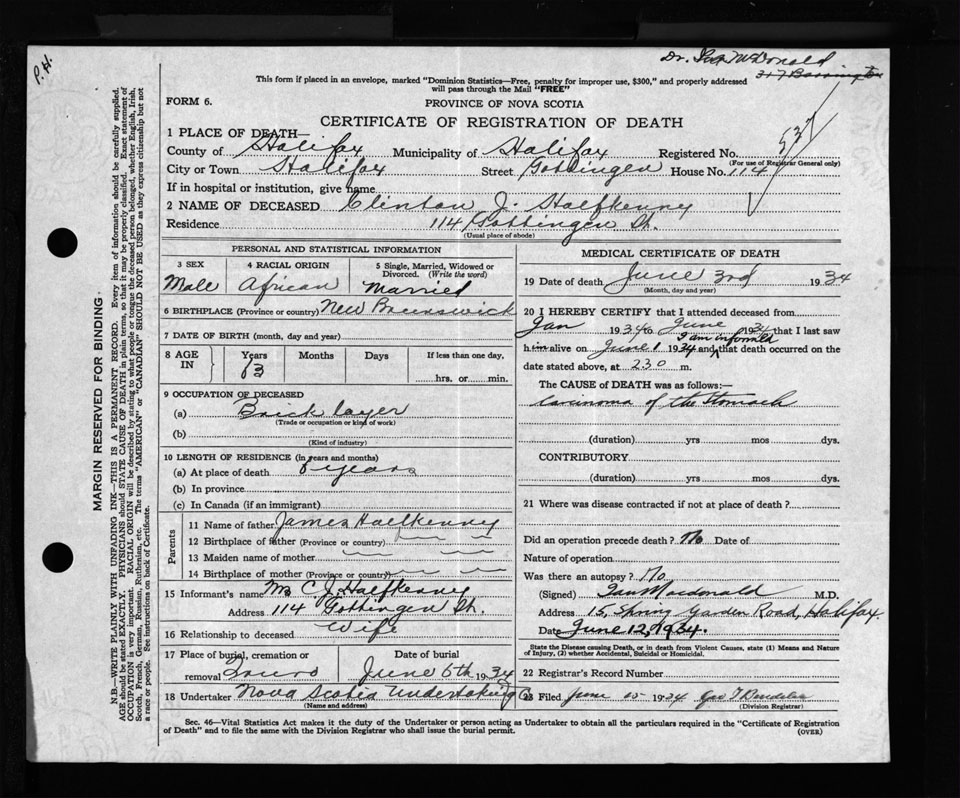 P.H.
Dr. Ian McDonald
317 Barrington
This form if placed in an envelope, marked "Dominion Statistics—Free, penalty for improper use, $300," and properly addressed
will pass through the Mail "FREE"
FORM 6.
PROVINCE OF NOVA SCOTIA
CERTIFICATE OF REGISTRATION OF DEATH
537
1 PLACE OF DEATH—
County of Halifax Municipality of Halifax Registered No.
(For use of Registrar General only)
City or Town Halifax Street Gottingen House No. 114
If in hospital or institution, give name
2 NAME OF DECEASED Clinton J. Halfkenny
Residence 114 Gottingen St.
(Usual place of abode)
PERSONAL AND STATISTICAL INFORMATION
3 SEX Male
4 RACIAL ORIGIN African
5 Single, Married, Widowed or Divorced. (Write the word) Married
6 BIRTHPLACE (Province or country) New Brunswick
7 DATE OF BIRTH (month, day and year)
8 AGE IN Years Months Days If less than one day,
hrs. or min.
9 OCCUPATION OF DECEASED
(a) Brick layer
(Trade or occupation or kind of work)
(b)
(Kind of industry)
10 LENGTH OF RESIDENCE (in years and months)
(a) At place of death 8 years
(b) In province
(c) In Canada (if an immigrant)
Parents
11 Name of father James Halfkenny
12 Birthplace of father (Province or country)
13 Maiden name of mother
14 Birthplace of mother (Province or country)
15 Informant's name Mrs C. J. Halfkenny
Address 114 Gottingen St.
16 Relationship to deceased Wife
17 Place of burial, cremation or removal Truro
Date of burial June 6th 1934
18 Undertaker Nova Scotia Undertaking Co
(Name and address)
MEDICAL CERTIFICATE OF DEATH
19 Date of death June 3rd 1934
(Month, day and year)
20 I HEREBY CERTIFY that I attended deceased from
Jan 1934 to June 1934 that I last saw
him alive on June 1 1934 and I am informed that death occurred on the
date stated above, at 230 m.
The CAUSE of DEATH was as follows:—
Carcinoma of the Stomach
(duration) yrs mos dys.
CONTRIBUTORY
(duration) yrs mos dys.
21 Where was disease contracted if not at place of death?
Did an operation precede death? No Date of
Nature of operation
Was there an autopsy? No.
(Signed) Ian Macdonald M.D.
Address 15, Spring Garden Road, Halifax.
Date June 12, 1934.
State the Disease causing Death, or in death from Violent Causes, state (1) Means and Nature of Injury, (2) whether Accidental, Suicidal or Homicidal.
22 Registrar's Record Number
23 Filed June 1934 Geo T
(Division Registrar)
Sec. 46—Vital Statistics Act makes it the duty of the Undertaker or person acting as Undertaker to obtain all the particulars required in the "Certificate of Registration
of Death" and to file the same with the Division Registrar who shall issue the burial permit.
(OVER)
MARGIN RESERVED FOR BINDING
N.B.—WRITE PLAINLY WITH UNFADING INK—THIS IS A PERMANENT RECORD. Every item of information should be carefully supplied.
AGE should be stated EXACTLY. PHYSICIANS should STATE CAUSE OF DEATH in plain terms, so that it may be properly classified. Exact statement of
OCCUPATION is very important. RACIAL ORIGIN will be described by stating to what people or tongue the deceased person belonged, whether English, Irish,
Scotch, French, German, Russian, Ruthenian, etc. The terms "AMERICAN" or "CANADIAN" SHOULD NOT BE USED as they express citizenship but not
a race or people. See instructions on back of Certificate.